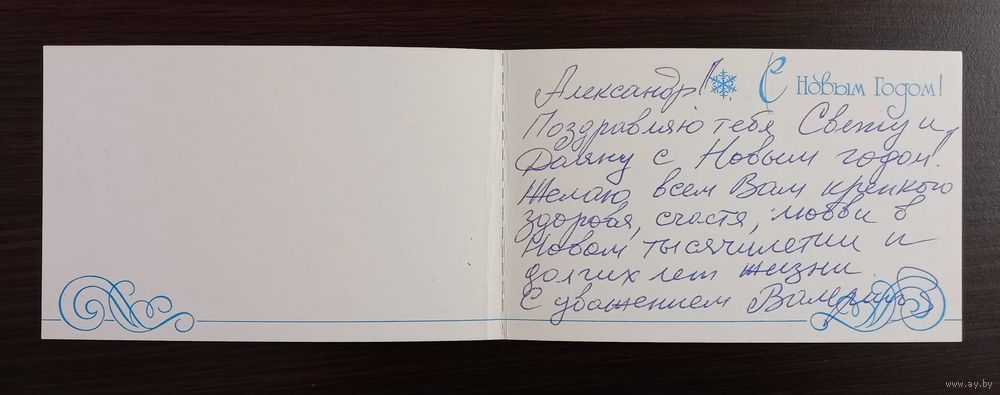 Александр! С Новым Годом!
Поздравляю тебя Свету и
с Новым годом!
Желаю всем Вам крепкого
здоровя, счастя, любви в
Новом тысячилетии и
долгих лет жизни.
С уважением
www.ay.by